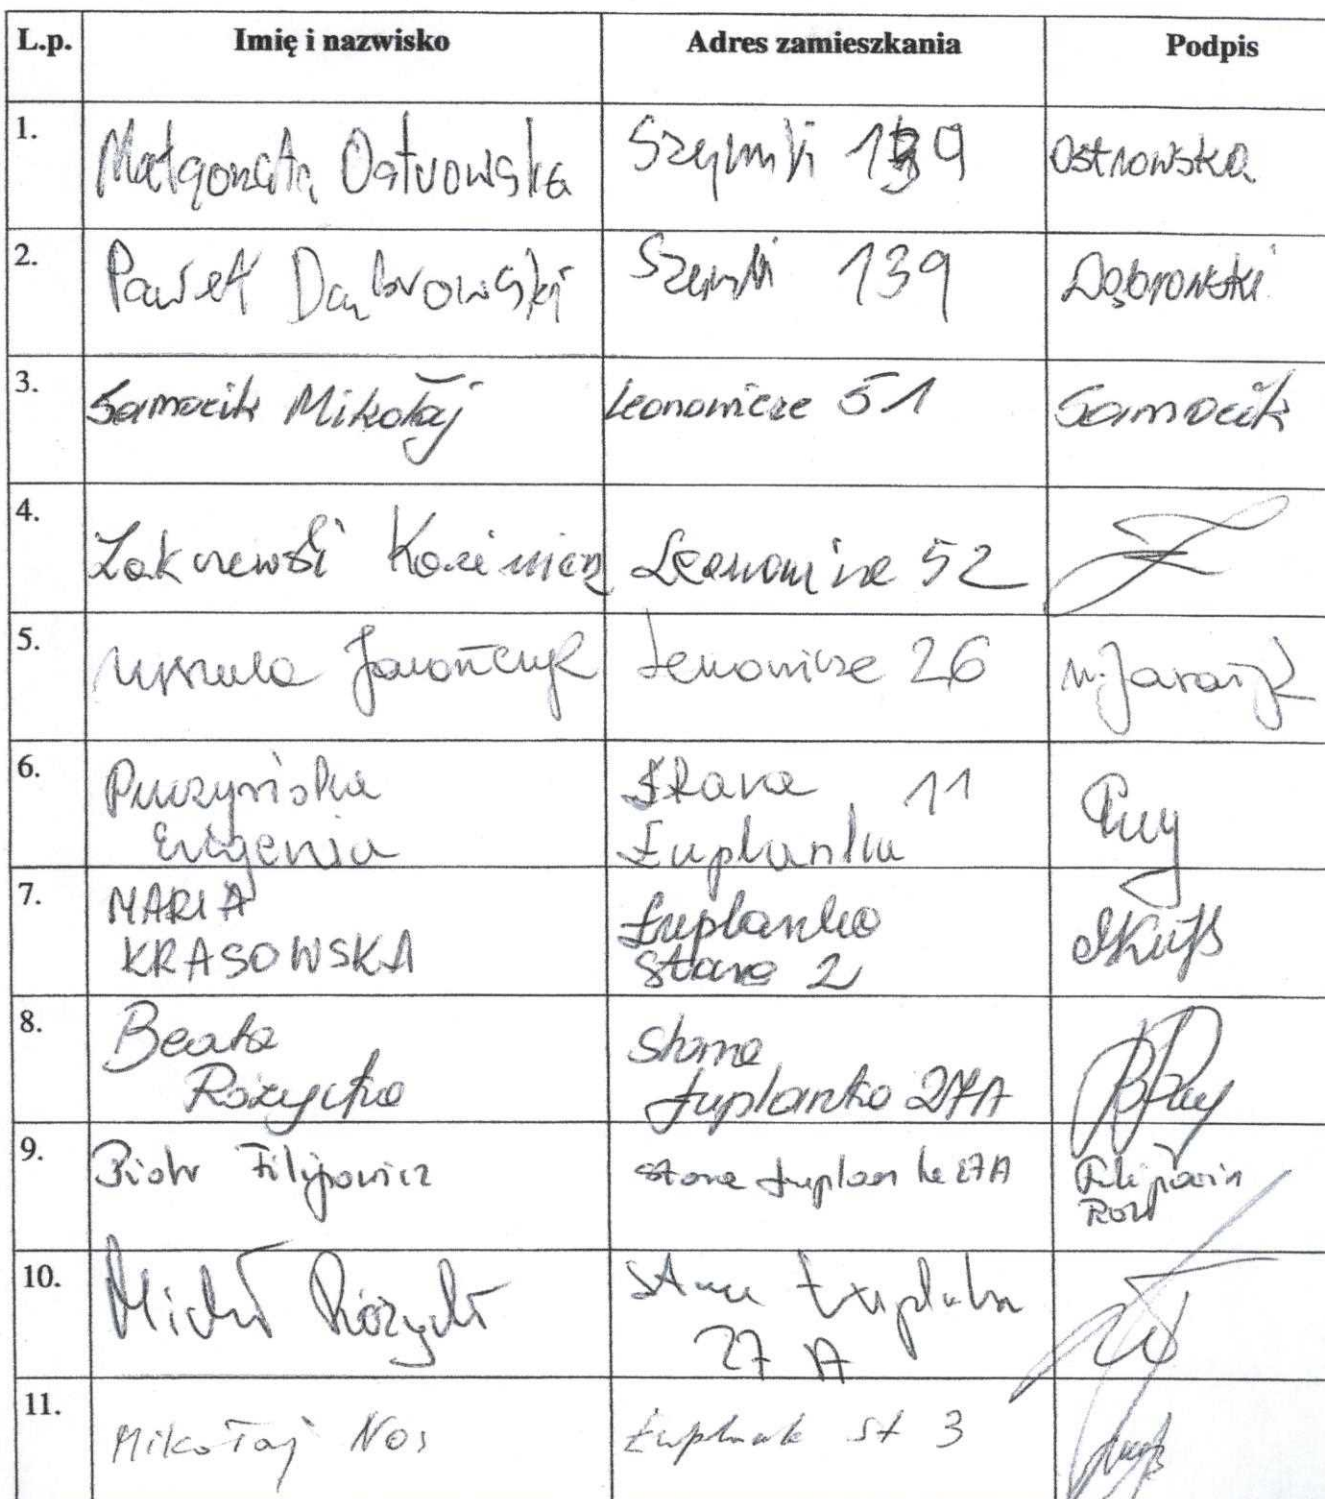 L.p. Imię i nazwisko Adres zamieszkania Podpis
1. Małgorzata Ostrowska Szymki 139 Ostrowska
2. Paweł Dąbrowski Szymki 139 Dąbrowski
3. Samocik Mikołaj Leonowicze 51 Samocik
4. Zakrzewski Kazimierz Leonowicze 52
5. Urszula Jarończyk Leonowicze 26
6. Puczyńska Stara 11
Eugenia Łuplanka
7. MARIA Łuplanka
KRASOWSKA Stara 2
8. Beata Stara
Różycka Łuplanka 27A
9. Piotr Filipowicz Stara Łuplanka 27A
10. Michał Różycki Stara Łuplanka
27 A
11. Mikołaj Nos Łuplank St 3